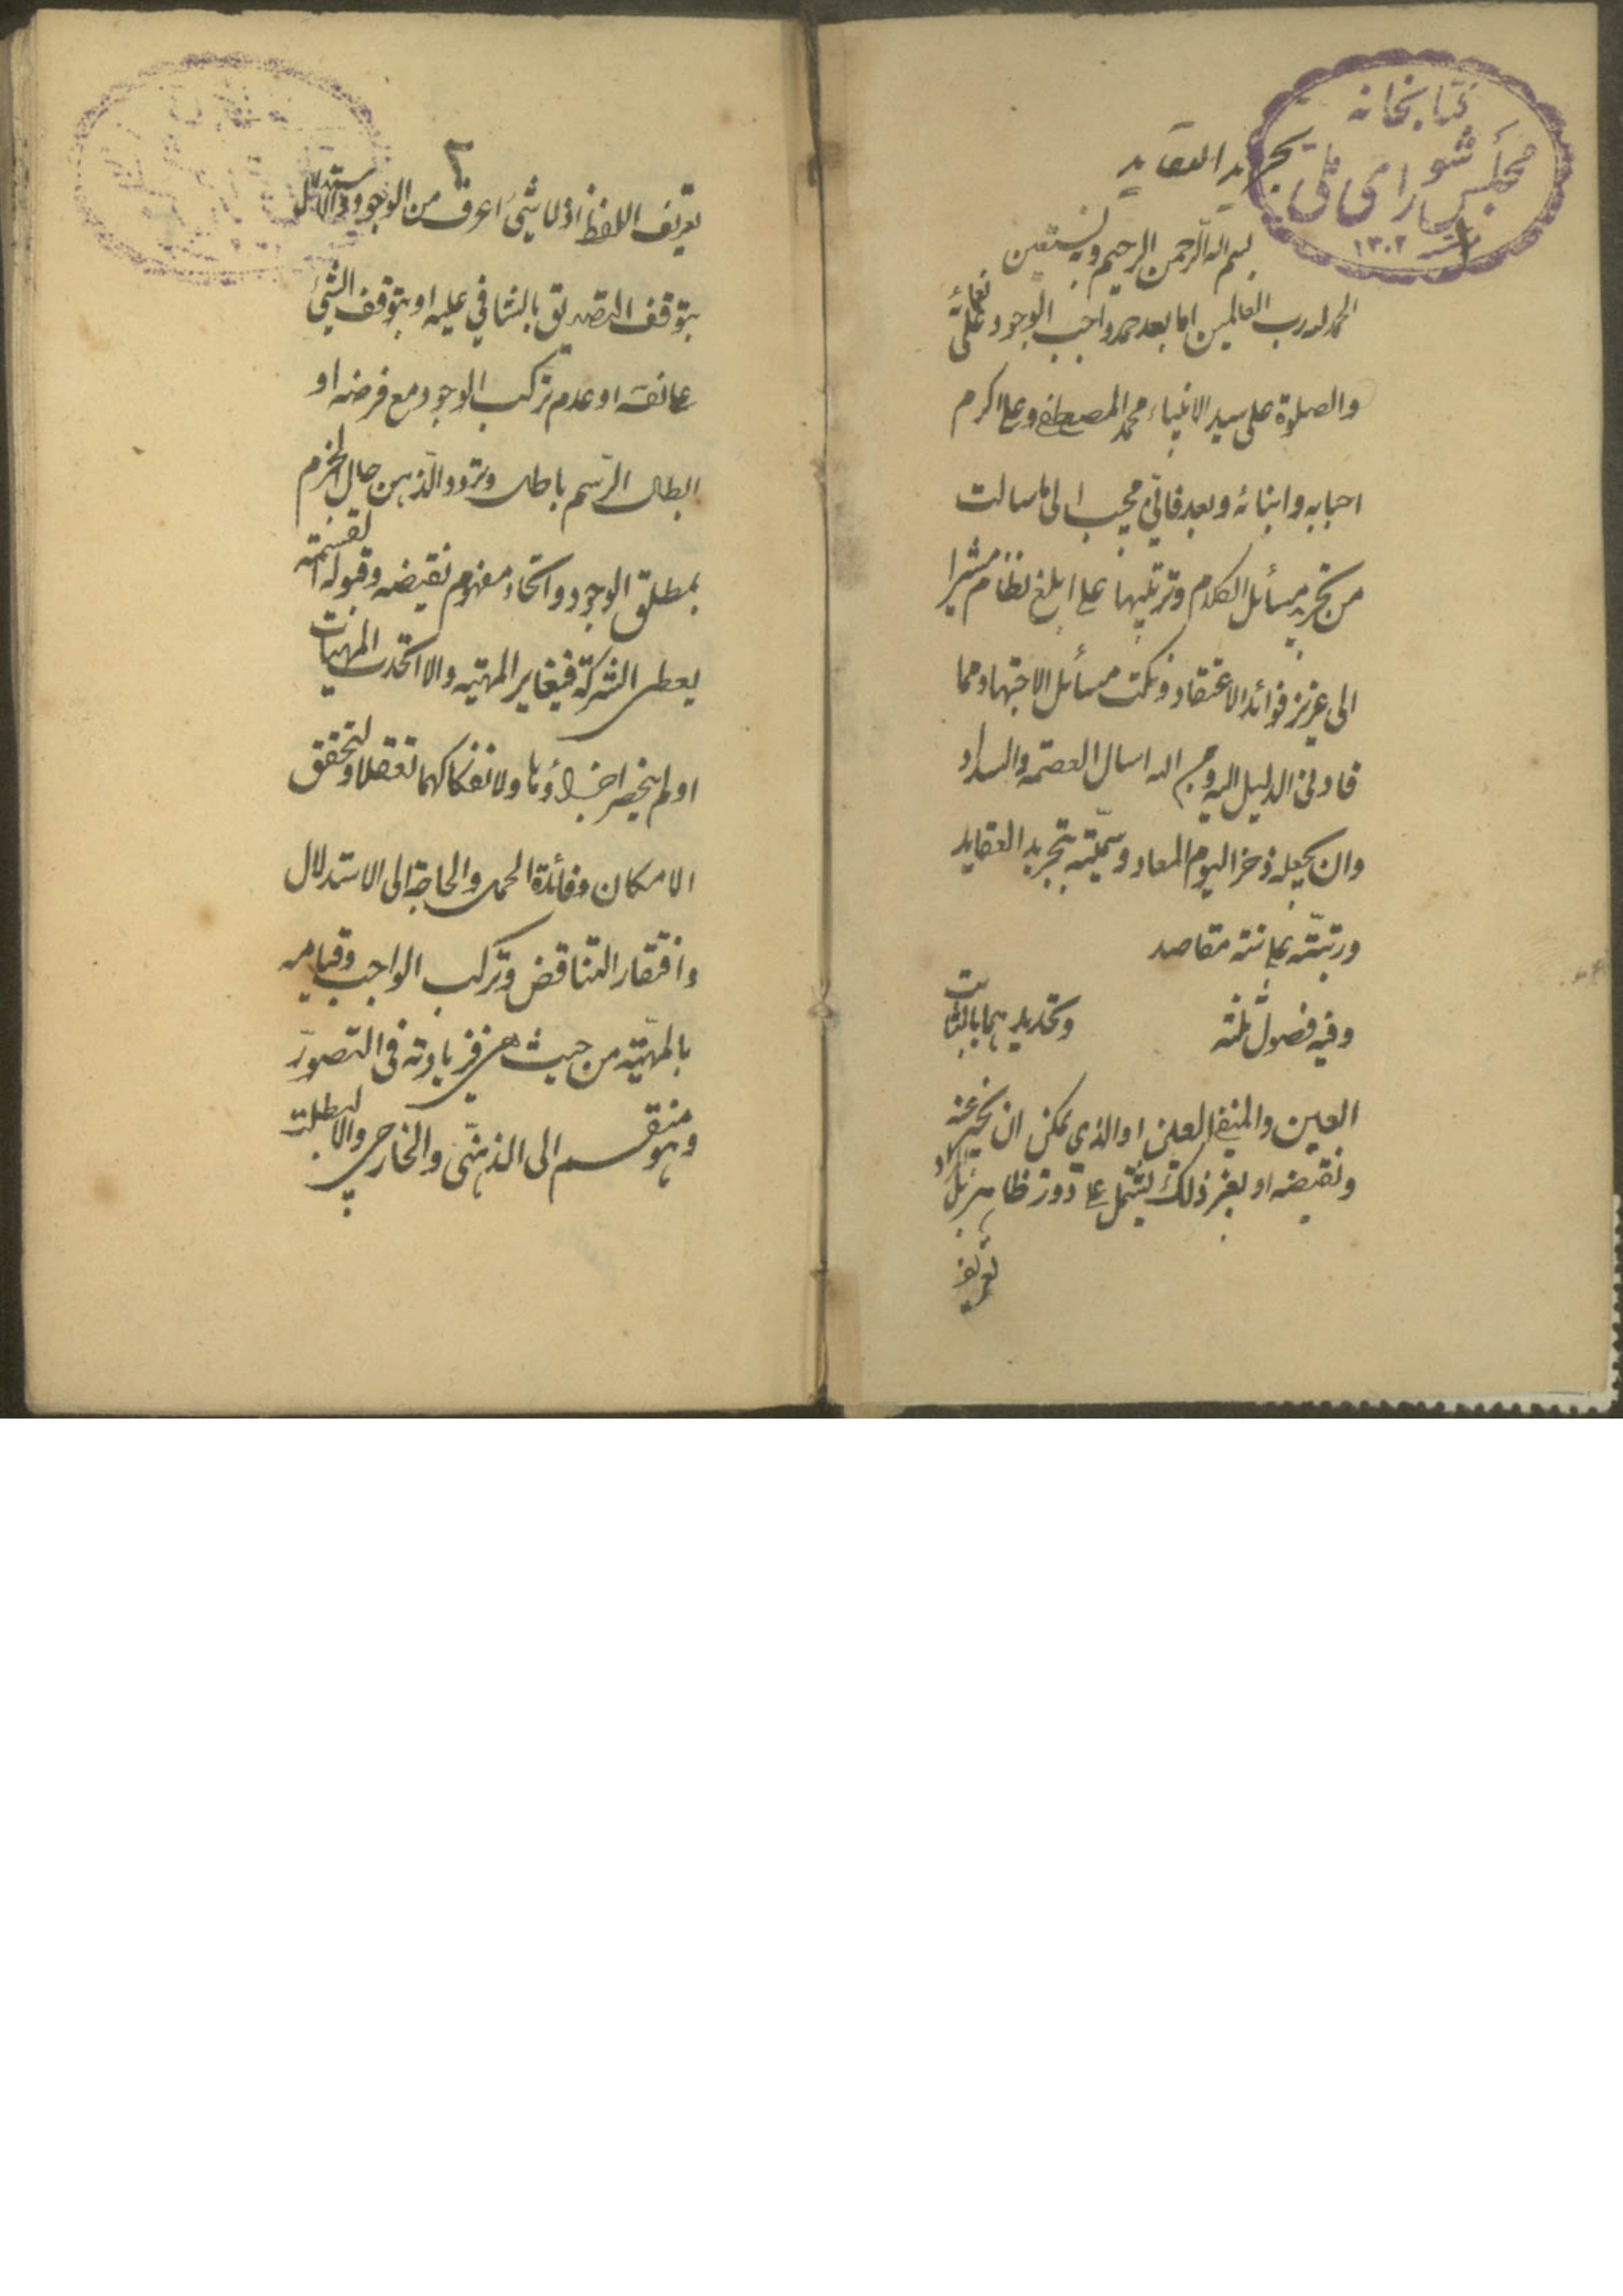 کتابخانه
مجلس شورای ملی
۱۳۰۲
تجرید العقاید
بسم الله الرحمن الرحیم وبه نستعین
الحمد لله رب العالمین اما بعد حمد واجب الوجود علی نعمائه
والصلوة علی سید الانبیاء محمد المصطفی وعلی اکرم
احبابه وابنائه وبعد فانی مجیب الی ما سالت
من تحریر مسائل الکلام وترتیبها علی ابلغ نظام مشیرا
الی غرر فوائد الاعتقاد ونکت مسائل الاجتهاد مما
قادنی الدلیل الیه والله اسال العصمة والسداد
وان یجعله ذخرا لیوم المعاد وسمیته بتجرید العقاید
ورتبته علی ستة مقاصد
وفیه فصول ثلثة وتحدیدهما بالثابت
العین والمنفی العین او الذی یمکن ان یخبر عنه
ونقیضه او بغیر ذلک یشتمل علی دور ظاهر بل المراد
تعریف
۲
تعریف اللفظ اذ لا شیء اعرف من الوجود والاستدلال
بتوقف التصدیق بالتنافی علیه او بتوقف الشیء
علی نفسه او عدم ترکب الوجود مع فرضه او
ابطال الرسم باطل وتردد الذهن حال الجزم
بمطلق الوجود واتحاد مفهوم نقیضه وقبوله القسمة
یعطی الشرکة فیغایر المهیة والا اتحدت المهیات
او لم ینحصر اجزاؤها ولانفکاکهما تعقلا ولتحقق
الامکان وفائدة الحمل والحاجة الی الاستدلال
وانتفاء التناقض وترکب الواجب وقیامه
بالمهیة من حیث هی فزیادته فی التصور
وهو منقسم الی الذهنی والخارجی والا لبطلت